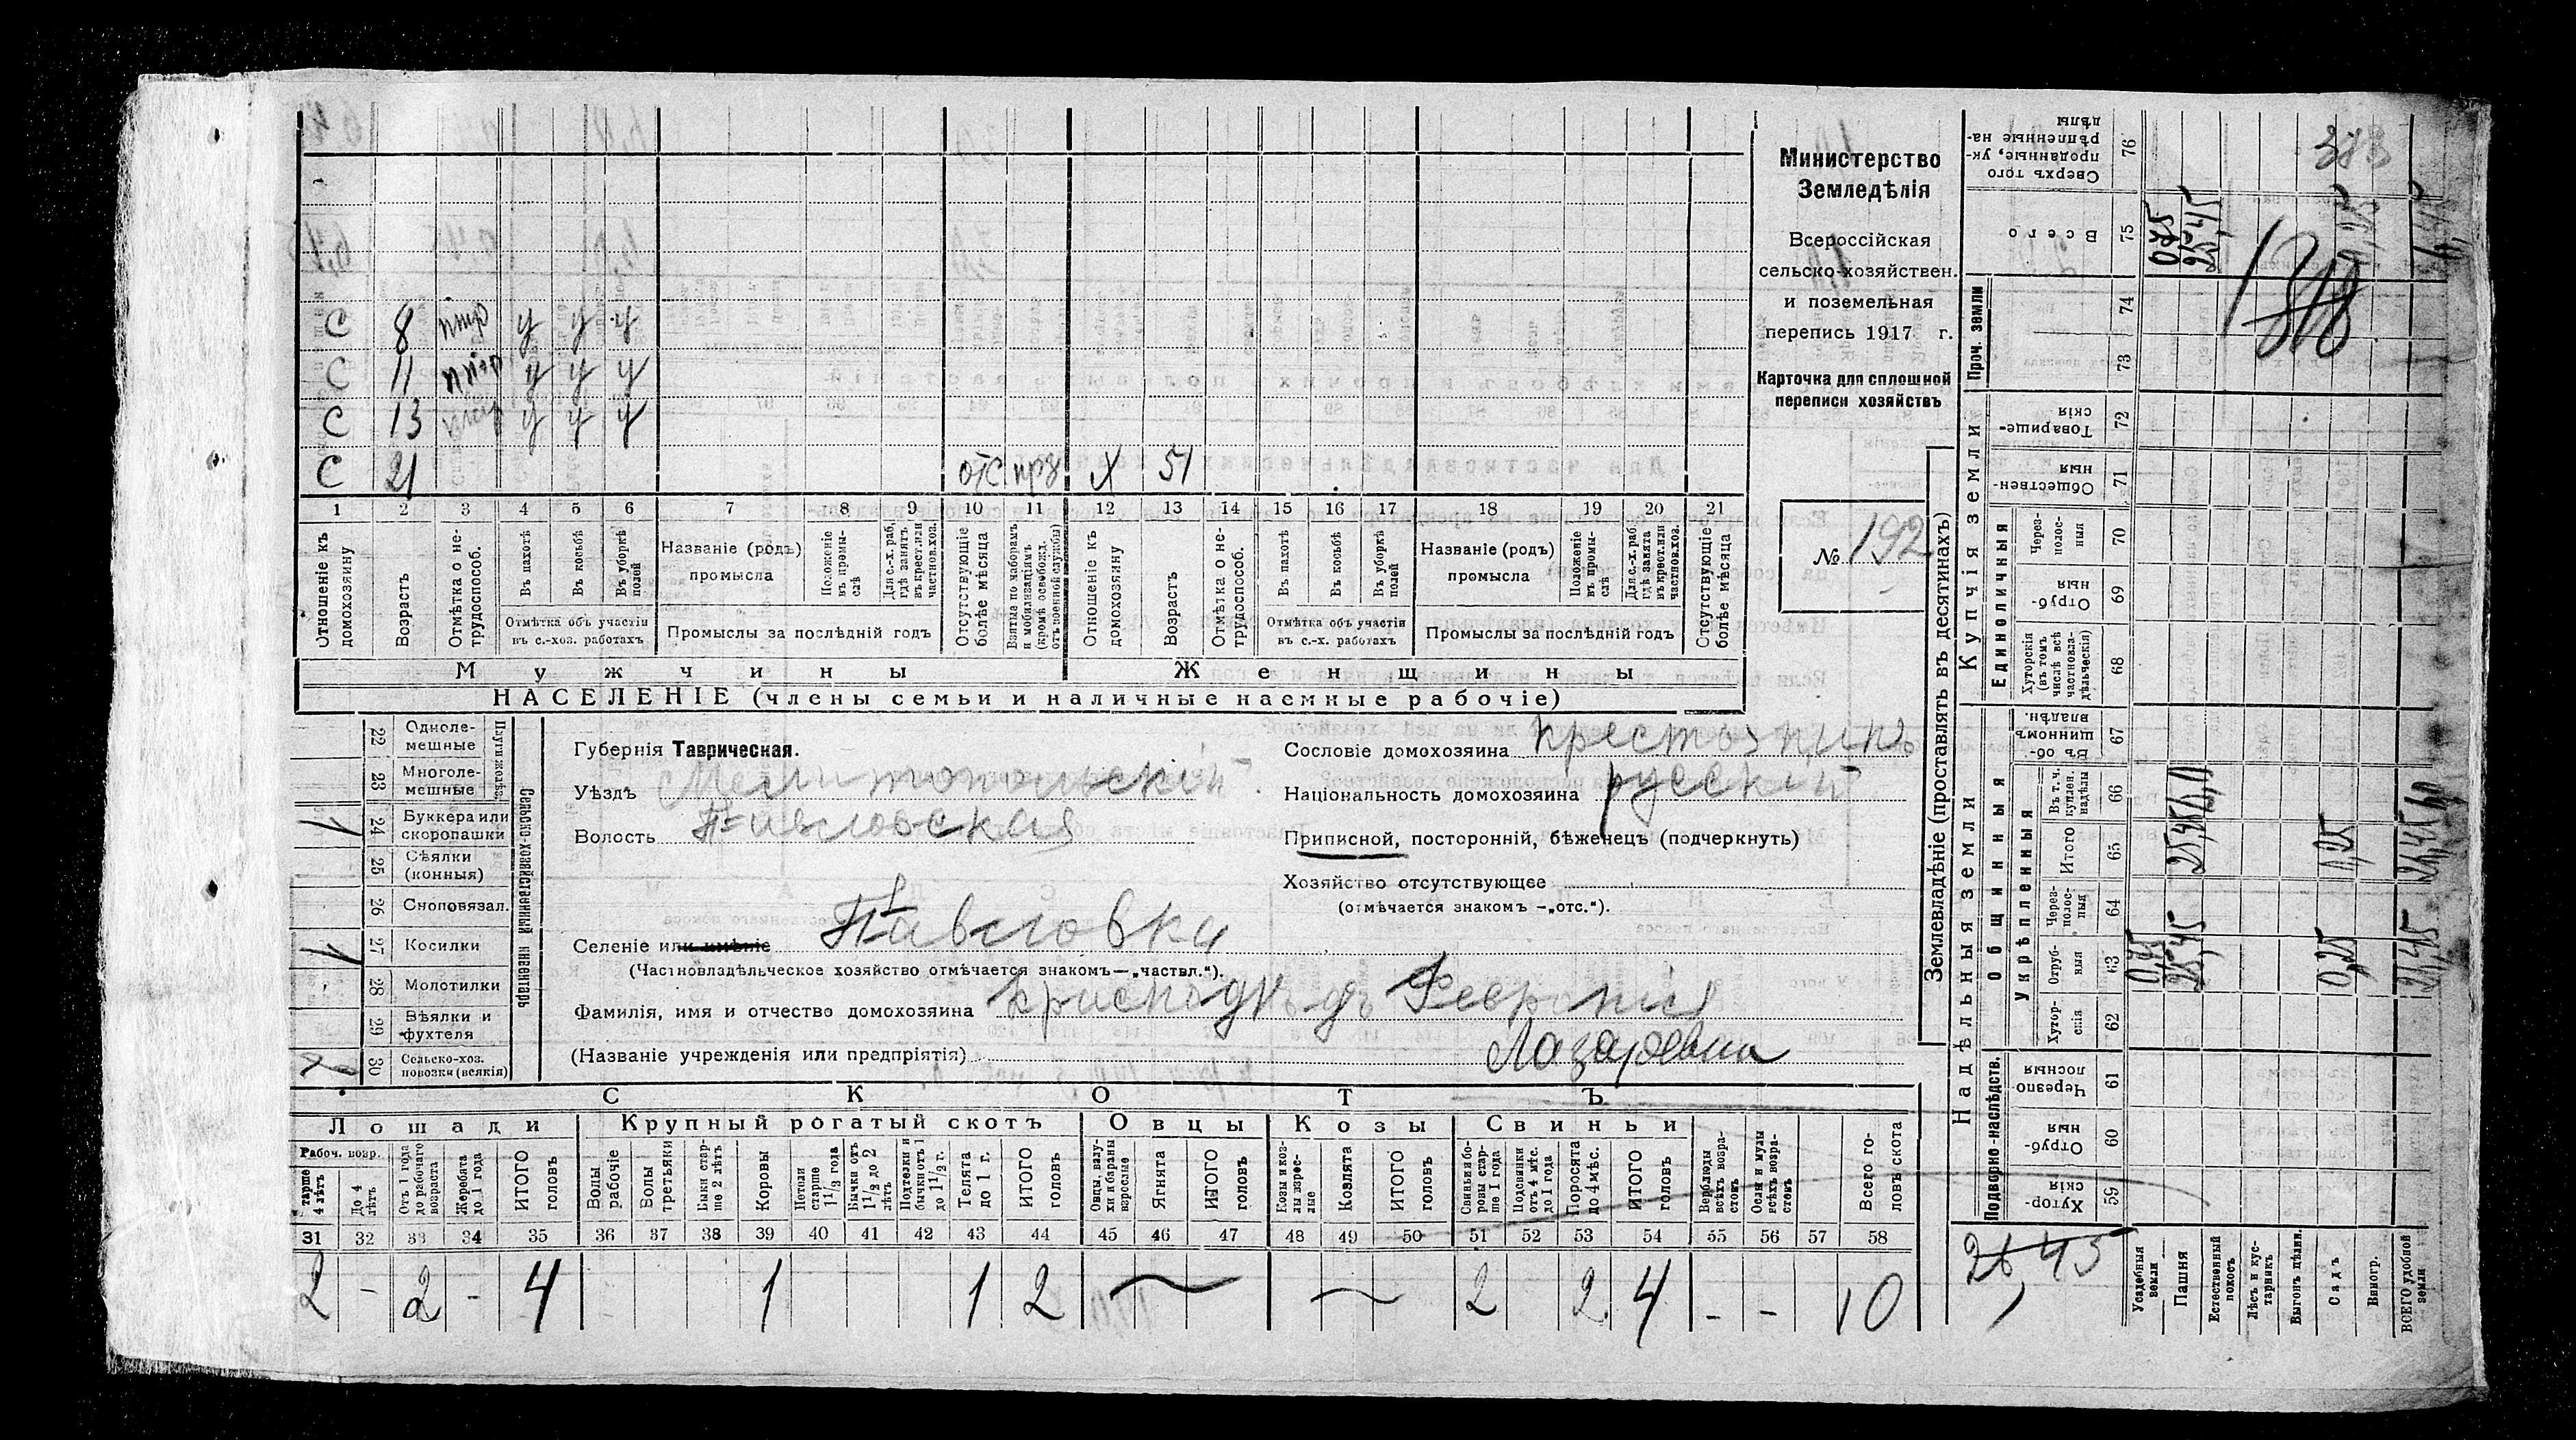 Министерство
Земледѣлія
Всероссійская
сельско-хозяйствен.
и поземельная
перепись 1917 г.
Карточка для сплошной
переписи хозяйствъ
№ 192
С 8 у у у
С 11 у у у
С 13 у у у
С 21 отс Х 51
1 2 3 4 5 6 7 8 9 10 11 12 13 14 15 16 17 18 19 20 21
Отношеніе къ домохозяину
Возрастъ
Отмѣтка о нетрудоспособ.
Въ пахотѣ
Въ косьбѣ
Въ уборкѣ полей
Отмѣтка объ участіи
въ с.-хоз. работахъ
Названіе (родъ)
промысла
Положеніе въ промыслѣ
Для с.-х. раб. гдѣ занятъ въ крест. или частнов. хоз.
Промыслы за послѣдній годъ
Отсутствующіе болѣе мѣсяца
Взятыя по наборамъ и мобилизаціямъ (кромѣ освобожд. отъ военной службы)
Отношеніе къ домохозяину
Возрастъ
Отмѣтка о нетрудоспособ.
Въ пахотѣ
Въ косьбѣ
Въ уборкѣ полей
Отмѣтка объ участіи
въ с.-х. работахъ
Названіе (родъ)
промысла
Положеніе въ промыслѣ
Для с.-х. раб. гдѣ занята въ крест. или частнов. хоз.
Промыслы за послѣдній годъ
Отсутствующіе болѣе мѣсяца
Мужчины Женщины
НАСЕЛЕНІЕ (члены семьи и наличные наемные рабочіе)
Сельско-хозяйственный инвентарь
Плуги желѣз.
22 Однолемешные
23 Многолемешные
24 Буккера или скоропашки 1
25 Сѣялки (конныя)
26 Сноповязал.
27 Косилки 1
28 Молотилки
29 Вѣялки и фухтеля
30 Сельско-хоз. повозки (всякія)
Губернія Таврическая.
Уѣздъ Мелитопольскій
Волость Павловская
Селеніе или имѣніе Павловка
(Частновладѣльческое хозяйство отмѣчается знакомъ—„частвл.“).
Фамилія, имя и отчество домохозяина Феврония
(Названіе учрежденія или предпріятія) Лазаревна
Сословіе домохозяина крестьянинъ
Національность домохозяина русскій
Приписной, посторонній, бѣженецъ (подчеркнуть)
Хозяйство отсутствующее
(отмѣчается знакомъ —„отс.“).
СКОТЪ
Лошади Крупный рогатый скотъ Овцы Козы Свиньи
Рабоч. возр.
Старше 4 лѣтъ
До 4 лѣтъ
Отъ 1 года до рабочаго возраста
Жеребята до 1 года
ИТОГО головъ
Волы рабочіе
Волы третьяки
Быки старше 2 лѣтъ
Коровы
Нетели старше 1 1/2 года
Бычки отъ 1 1/2 до 2 лѣтъ
Подтелки и бычки отъ 1 до 1 1/2 г.
Телята до 1 г.
ИТОГО головъ
Овцы, валухи и бараны взрослые
Ягнята
ИТОГО головъ
Козы и козлы взрослые
Козлята
ИТОГО головъ
Свиньи и боровы старше 1 года
Подсвинки отъ 4 мѣс. до 1 года
Поросята до 4 мѣс.
ИТОГО головъ
Верблюды всѣхъ возрастовъ
Ослы и мулы всѣхъ возрастовъ
Всего головъ скота
31 32 33 34 35 36 37 38 39 40 41 42 43 44 45 46 47 48 49 50 51 52 53 54 55 56 57 58
2 - 2 - 4 1 1 2 2 2 4 - - 10
Землевладѣніе (проставлять въ десятинахъ)
Надѣльныя земли Купчія земли Проч. земли
Подворно-наслѣдств.
Общинныя
Укрѣпленныя
Единоличныя
59 Хуторскія
60 Отрубныя
61 Черезполосныя
62 Хуторскія
63 Отрубныя 0,25
64 Черезполосныя
65 Итого 25,45
66 Въ т. ч. куплен. надѣлы
67 Въ общинномъ владѣн.
68 Хуторскія (въ томъ числѣ всѣ частновладѣльческія)
69 Отрубныя
70 Черезполосныя
71 Общественныя
72 Товарищескія
73
74
75 Всего 25,45
76 Сверхъ того проданные, укрѣпленные надѣлы
Усадебныя земли
Пашня
Естественный покосъ
Лѣсъ и кустарникъ
Выгонъ дѣлин.
Садъ
Виногр.
ВСЕГО удобной земли